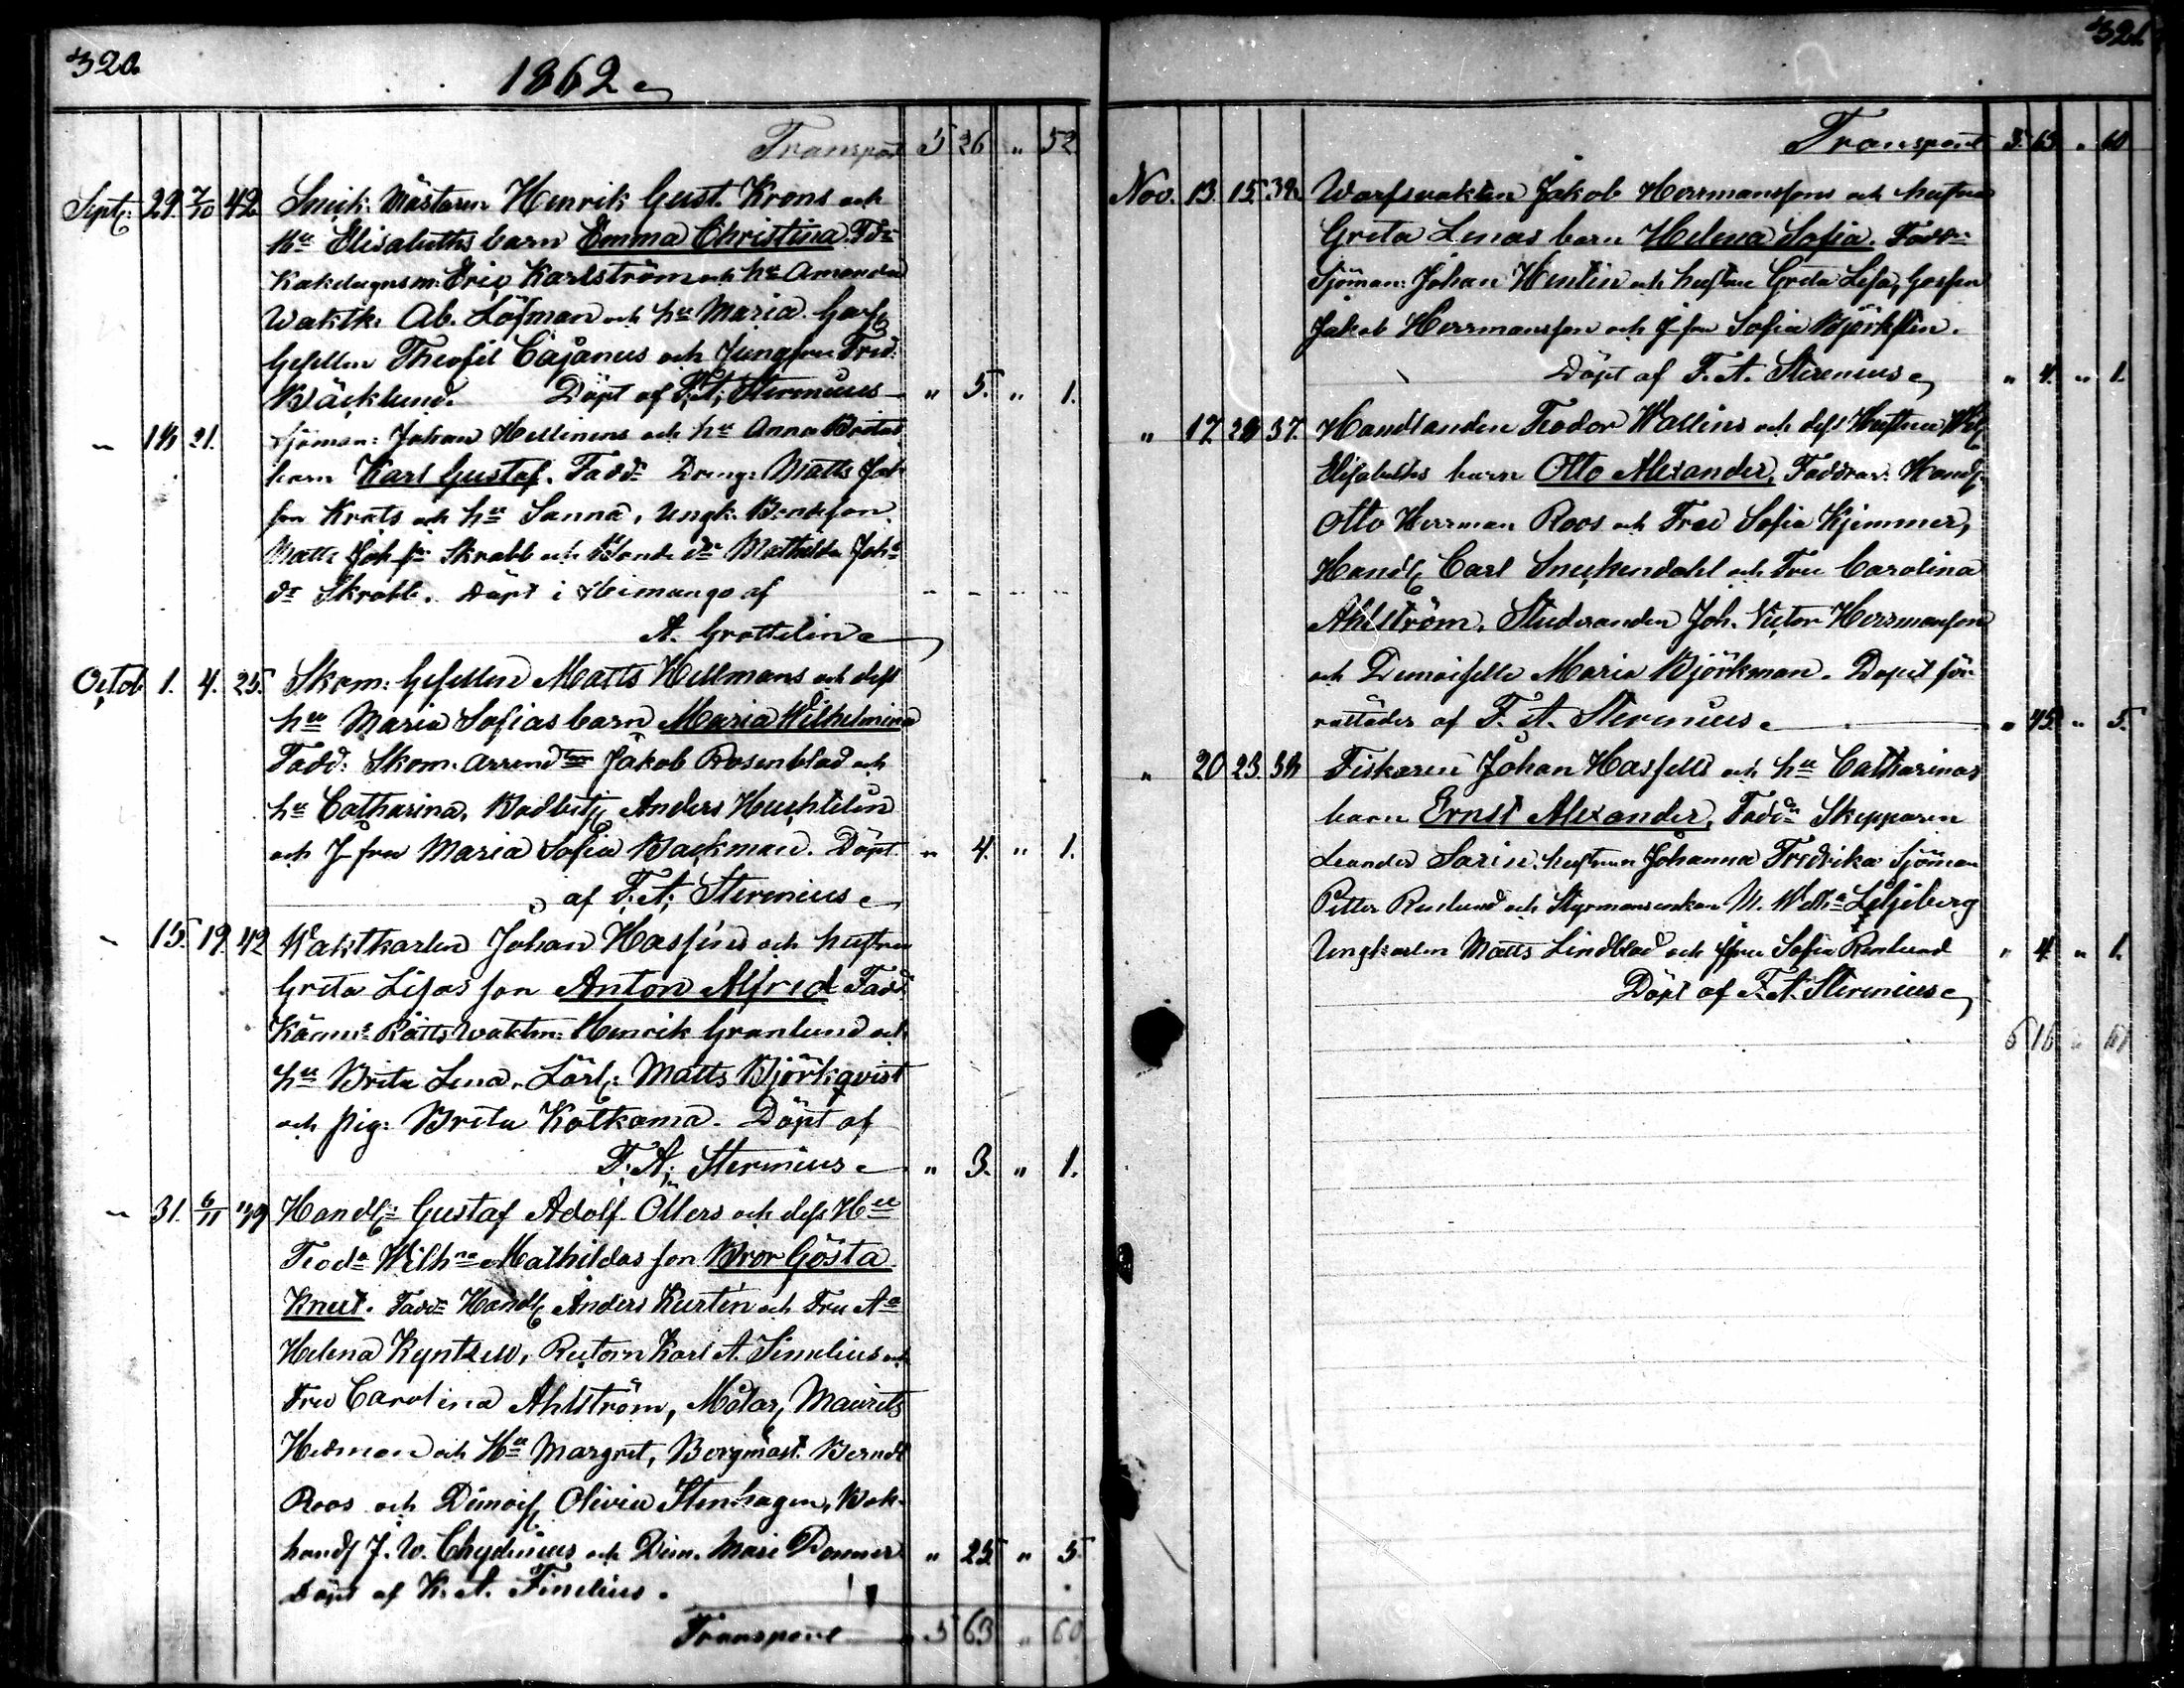 320.
1862
Transport 5 26 " 52
Sept: 29. 7/10 42. Snick. Mästaren Henrik Gust. Krons och
hu Elisabeths barn Emma Christina. Fdr
Kakelugnsm: Eric Karlström och hu Amanda
Waktk. Ab. Löfman och hu Maria.
Gesellen Theofil Cajanus och Jungfru Fred.
Bäcklund. Döpt af F. A. Stenius " 5. " 1.
21. Sjöman: Johan Hellmens och hu Anna Britas
barn Karl Gustaf. Fadd: Dreng: Matts Joh
son Krats och hu Sanna, Ungk. Bondeson
Matts Joh. Skrabb och Bonde dr Mathilda Joh
dr Skrabb. Döpt i Heimango af
A. Grottelin
Octob 1. 4. 25. Skom: Gesellen Matts Hellmans och dess
hu Maria Sofias barn Maria Wilhelmina
Fadd: Skom. arrend Jakob Rosenblad och
hu Catharina, Anders Huchtelin
och J-fru Maria Sofia Backman. Döpt. " 4. " 1.
af F. A. Stenius
15. 19. 42 Waktkarlen Johan Hassins och hustru
Greta Lisas son Anton Alfred Fadd
Kämn. Rätts waktm: Henrik Granlund och
hu Brita Lena, Lärl: Matts Björkqvist
och pig: Brita Kotkama. Döpt af
F. A. Stenius " 3. " 1.
31. 6/11 39 Handl: Gustaf Adolf Ollers och dess Hu
Feod. Wilh. Mathildas son Bror Gösta
Knut. Fadd Handl Anders Kurtén och Fru Aa
Helena Kyntzell, Rectorn Karl A. Simelius och
Fru Carolina Ahlström, Målar, Maurits
Hedman och Hu Margret, Borgmäst. Berndt
Roos och Demois Olivia Stenhagen, Bok-
handl J. W. Chydenius och Dem. Mari Donner " 25 " 5.
Döpt af K. A. Simelius.
Transport 5 63 " 60
321.
Transport 5. 63 " 60
Nov. 13. 15. 39. Warfsvakten Jakob Herrmanssons och hustru
Greta Lenas barn Helena Sofia. Fadd:
Sjöman: Johan Hentin och hustru Greta Lisa, Gossen
Jakob Herrmansson och J-fru Sofia Björksten.
Döpt af F. A. Stenius " 4. " 1.
" 17 37. Handlanden Feodor Wallins och dess Hustru
Elisabeths barn Otto Alexander, Faddrar: Handl.
Otto Herrman Roos och Fru Sofia Kjemmer,
Handl Carl Snellendahl och Fru Carolina
Ahlström, Studeranden Joh. Victor Herrmanson
och Demoiselle Maria Björkman. Dopet för-
rättades af F. A. Stenius " 45 " 5.
" 20 23. Fiskaren Johan Hassells och hu Catharinas
barn Ernst Alexander, Fadd: Skepparen
Leander Sarin, hustrun Johanna Fredrika Sjöman
Petter Renlund och Styrmansenkan Liljeberg
Ungkarlen Matts Lindblad och Jfru Sofia Renlund " 4. " 1.
Döpt af F. A. Stenius
6 16 " 67